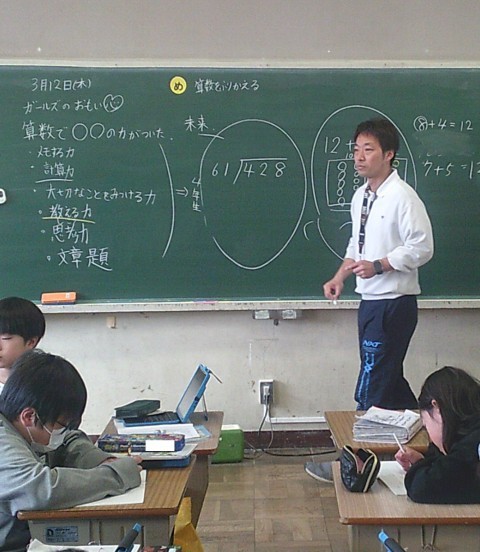 3月12日(木)
め 算数をふりかえる
算数で○○の力がついた。
・メモする力
・計算力
・大切なことをみつける力
・教える力
・思考力
・文章題
⇒
未来
4年生
61)428
12+
⑧+4=12
7+5=12